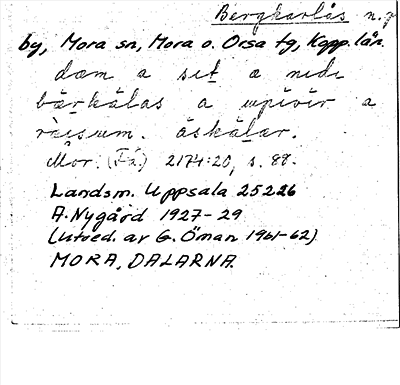 Bergkarlås n.
by, Mora sn, Mora o. Orsa tg, Kopp. län.
dom a set a nidi
bärkälas a upivir a
um. åskälar.
Mor. (Få) 2174:20, s. 88.
Landsm. Uppsala 25226
A. Nygård 1927-29
(Utred. av G. Öman 1961-62)
MORA, DALARNA.